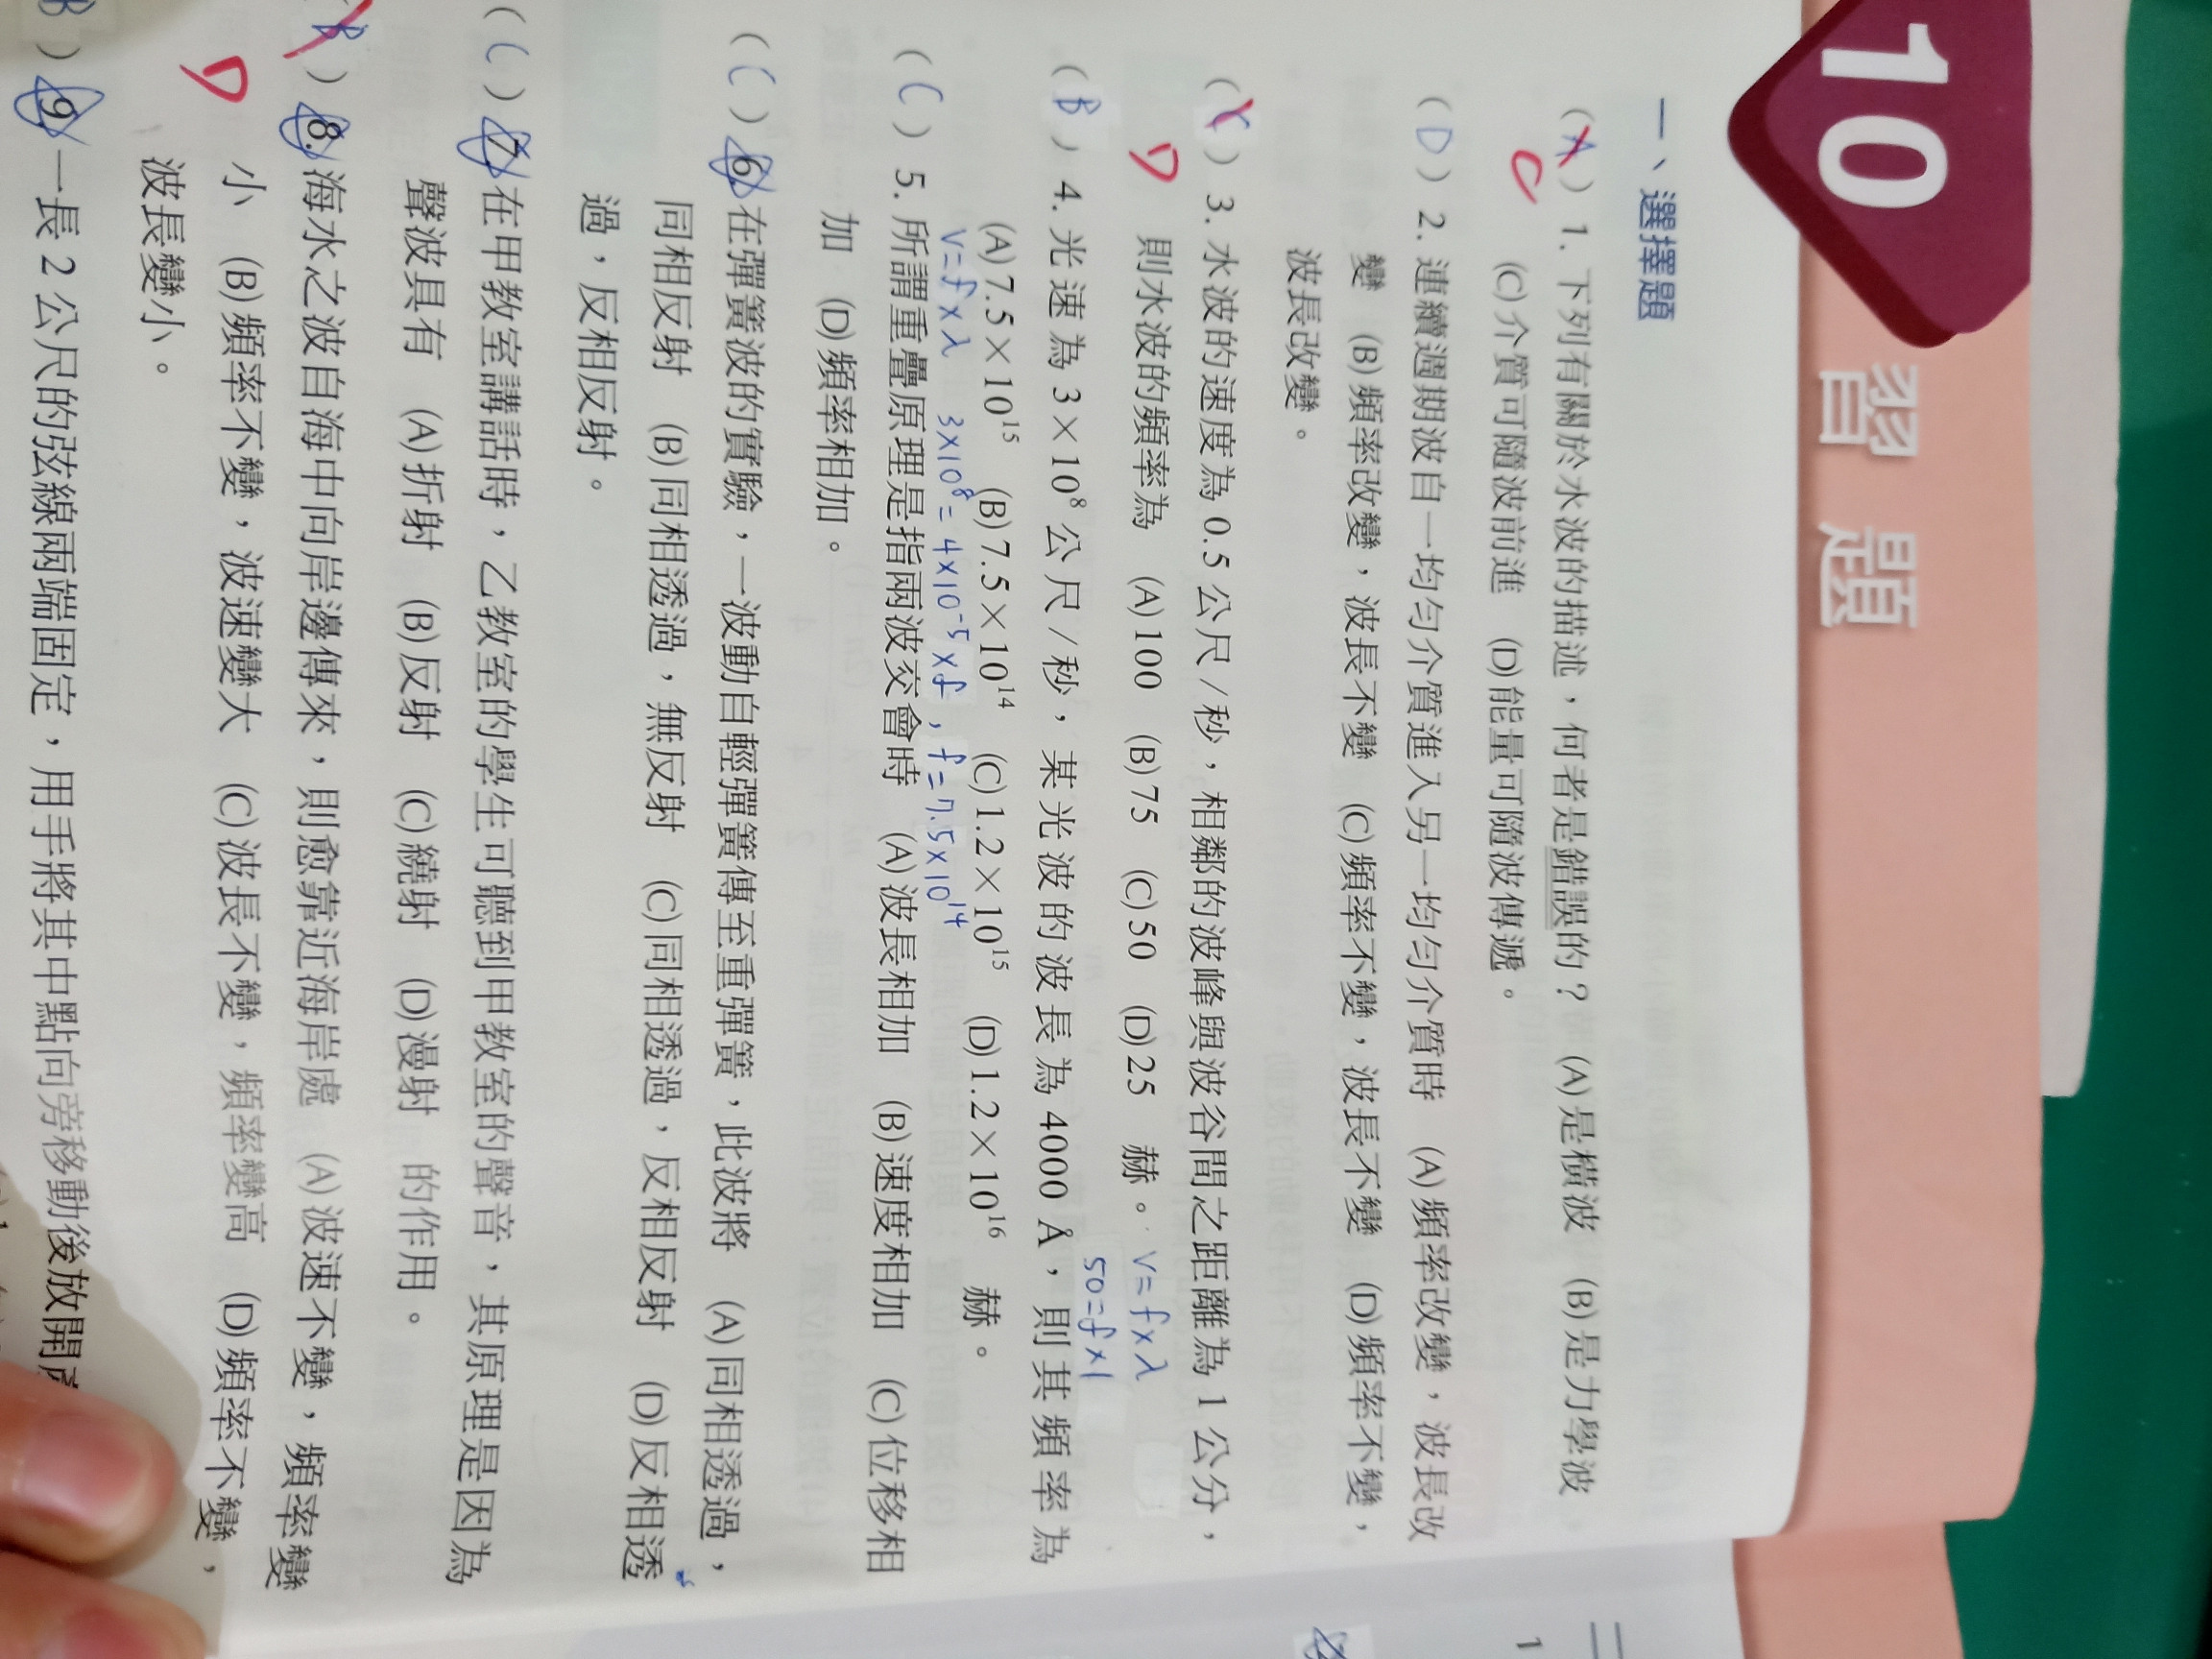 10 習題
一、選擇題
(A) 1. 下列有關於水波的描述，何者是錯誤的？ (A)是橫波 (B)是力學波
C (C)介質可隨波前進 (D)能量可隨波傳遞。
(D) 2. 連續週期波自一均勻介質進入另一均勻介質時 (A)頻率改變，波長改
變 (B)頻率改變，波長不變 (C)頻率不變，波長不變 (D)頻率不變，
波長改變。
( ) 3. 水波的速度為 0.5 公尺/秒，相鄰的波峰與波谷間之距離為 1 公分，
D 則水波的頻率為 (A)100 (B)75 (C)50 (D)25 赫。 V=f×λ
50=f×1
(B) 4. 光速為 3×10⁸ 公尺/秒，某光波的波長為 4000 Å，則其頻率為
(A)7.5×10¹⁵ (B)7.5×10¹⁴ (C)1.2×10¹⁵ (D)1.2×10¹⁶ 赫。
V=f×λ 3×10⁸=4×10⁻⁵×f，f=7.5×10¹⁴
(C) 5. 所謂重疊原理是指兩波交會時 (A)波長相加 (B)速度相加 (C)位移相
加 (D)頻率相加。
(C) 6. 在彈簧波的實驗，一波動自輕彈簧傳至重彈簧，此波將 (A)同相透過，
同相反射 (B)同相透過，無反射 (C)同相透過，反相反射 (D)反相透
過，反相反射。
(C) 7. 在甲教室講話時，乙教室的學生可聽到甲教室的聲音，其原理是因為
聲波具有 (A)折射 (B)反射 (C)繞射 (D)漫射 的作用。
(B) 8. 海水之波自海中向岸邊傳來，則愈靠近海岸處 (A)波速不變，頻率變
D 小 (B)頻率不變，波速變大 (C)波長不變，頻率變高 (D)頻率不變，
波長變小。
(B) 9. 一長 2 公尺的弦線兩端固定，用手將其中點向旁移動後放開
二
1